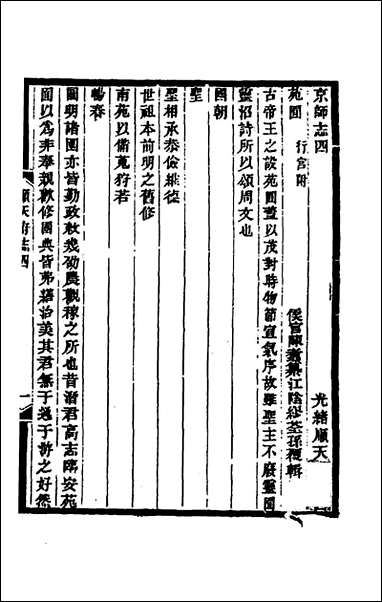 京師志四　光緒順天
苑囿　行宮附　侯官陳　纂江陰繆荃孫覆輯
古帝王之設苑囿蓋以茂對時物節宣氣序故雖聖主不廢靈囿
靈沼詩所以頌周文也
國朝
聖
聖相承恭儉維德
世祖本前明之舊修
南苑以備蒐狩若
暢春
圓明諸園亦皆勤政敕幾劭農觀稼之所也昔潛君高志臨安苑
囿以為非奉親歡修國典皆弗繕治美其君無于逸于游之好然
順天府志四　一